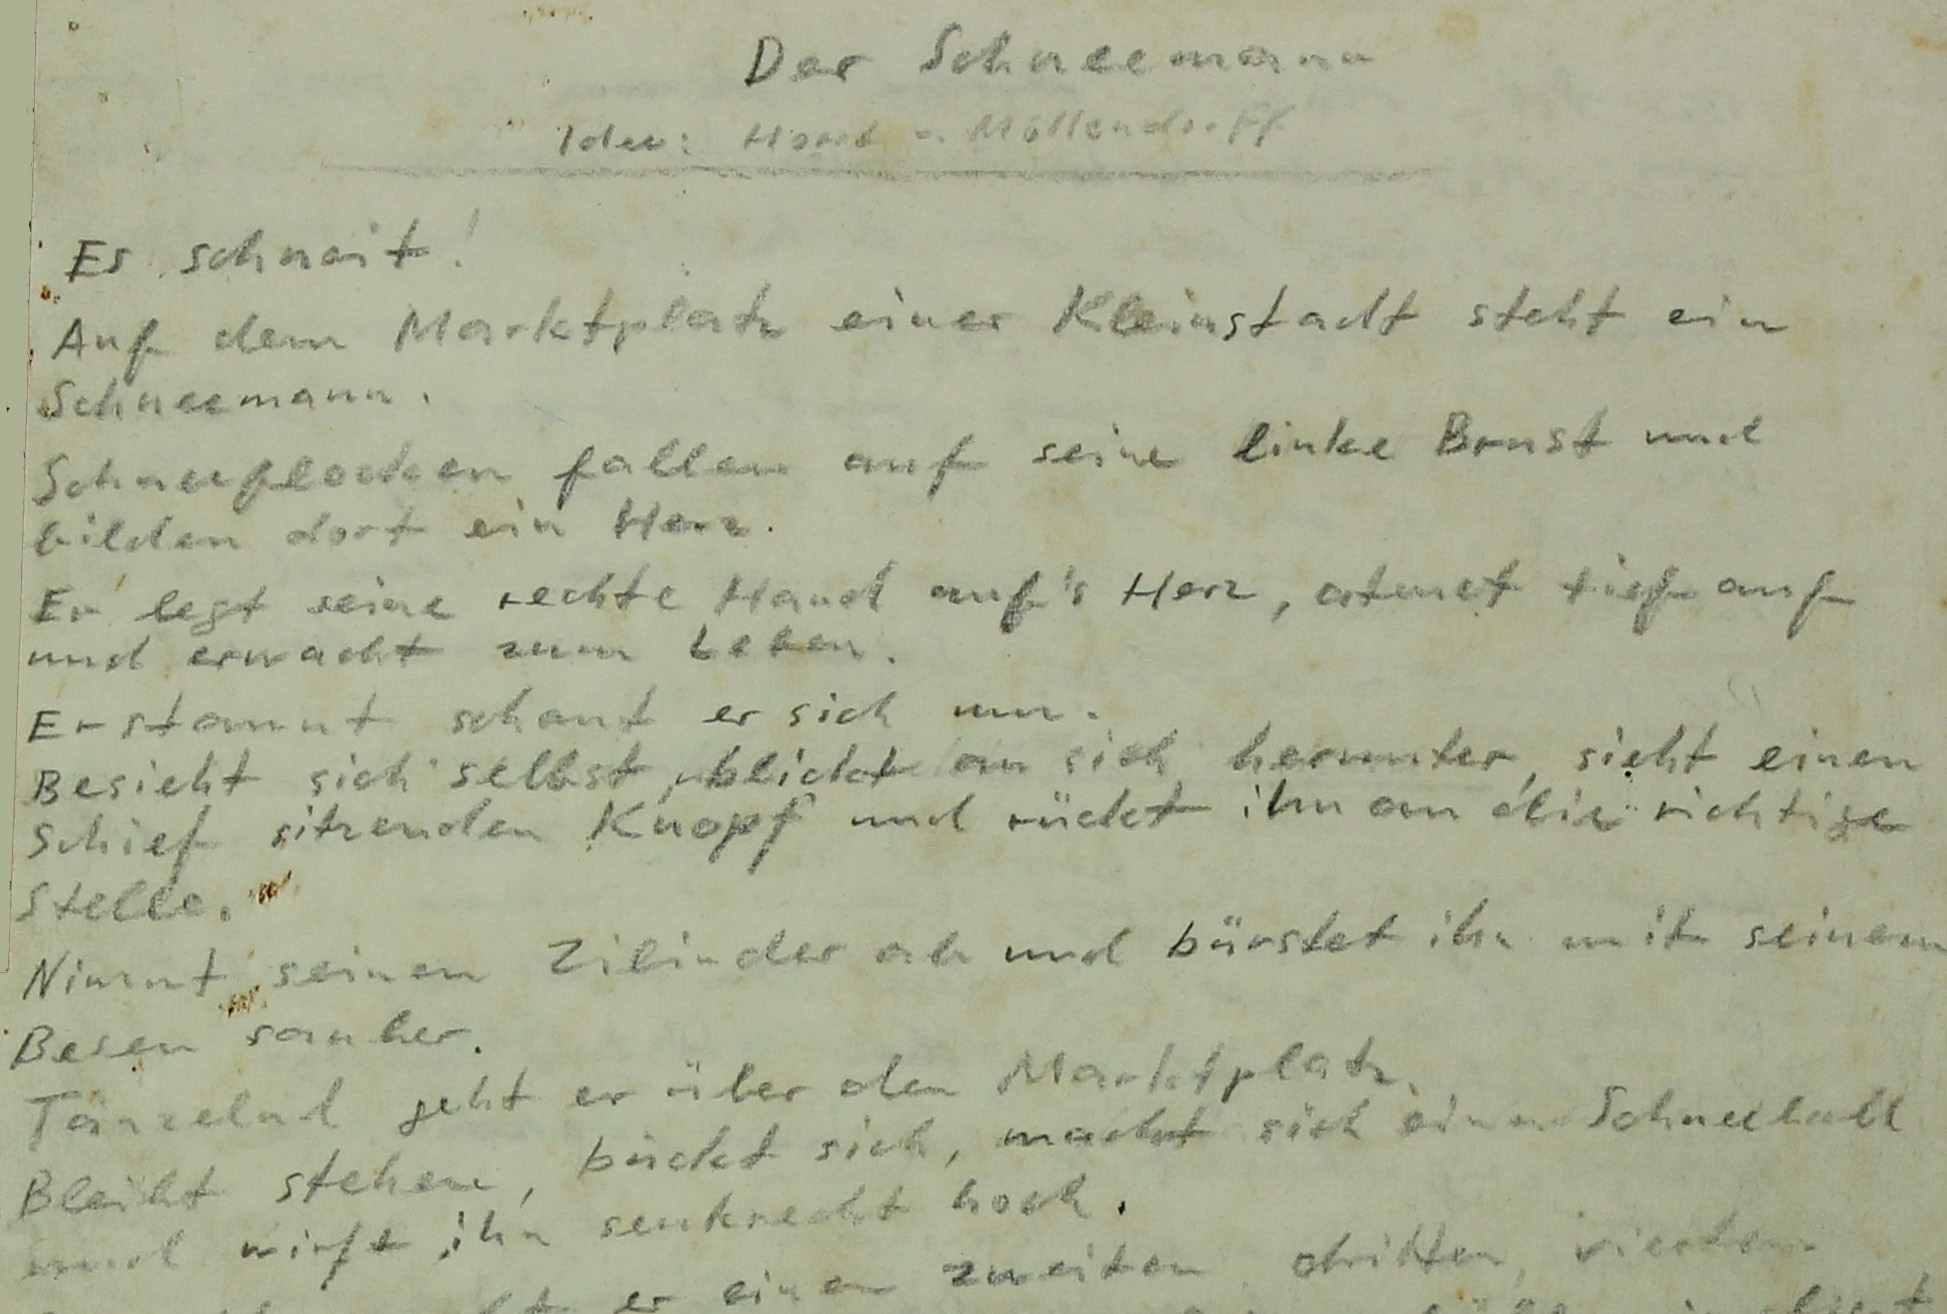 Der Schneemann
Idee: Horst v. Möllendorff
Es schneit!
Auf dem Marktplatz einer Kleinstadt steht ein
Schneemann.
Schneeflocken fallen auf seine linke Brust und
bilden dort ein Herz.
Er legt seine rechte Hand auf's Herz, atmet tief auf
und erwacht zum Leben.
Erstaunt schaut er sich um.
Besieht sich selbst, blickt an sich herunter, sieht einen
schief sitzenden Knopf und rückt ihn an die richtige
Stelle.
Nimmt seinen Zilinder ab und bürstet ihn mit seinem
Besen sauber.
Tänzelnd geht er über den Marktplatz.
Bleibt stehen, bückt sich, macht sich einen Schneeball
und wirft ihn senkrecht hoch.
er einen zweiten, dritten, vierten